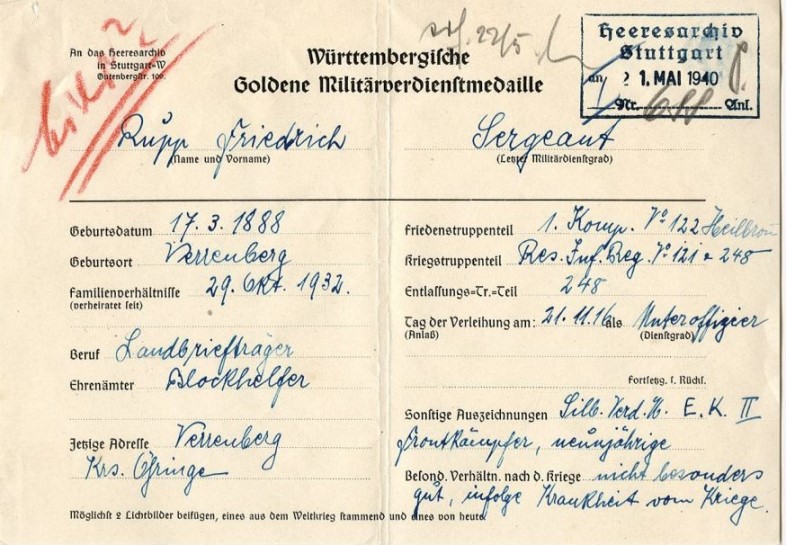 An das Heeresarchiv
in Stuttgart-W
Gutenbergstr. 109.
Württembergische
Goldene Militärverdienstmedaille
22/5.
Heeresarchiv
Stuttgart
an 21. MAI 1940
Nr. 688 Anl.
Rupp Friedrich
(Name und Vorname)
Sergeant
(Letzter Militärdienstgrad)
Geburtsdatum 17. 3. 1888
Geburtsort Verrenberg
Familienverhältnisse 29. Okt. 1932.
(verheiratet seit)
Beruf Landbriefträger
Ehrenämter Blockhelfer
Jetzige Adresse Verrenberg
Krs. Öhringe
Friedenstruppenteil 1. Komp. No 122 Heilbron
Kriegstruppenteil Res. Inf. Reg. No 121 + 248
Entlassungs=Tr.=Teil 248
Tag der Verleihung am: 21. 11. 16 als Unteroffizier
(Anlaß) (Dienstgrad)
Fortsetzg. s. Rücks.
Sonstige Auszeichnungen Silb. Verd. M. E. K. II
Frontkämpfer, neunjährige
Besond. Verhältn. nach d. Kriege nicht besonders
gut, infolge Krankheit vom Kriege.
Möglichst 2 Lichtbilder beifügen, eines aus dem Weltkrieg stammend und eines von heute.